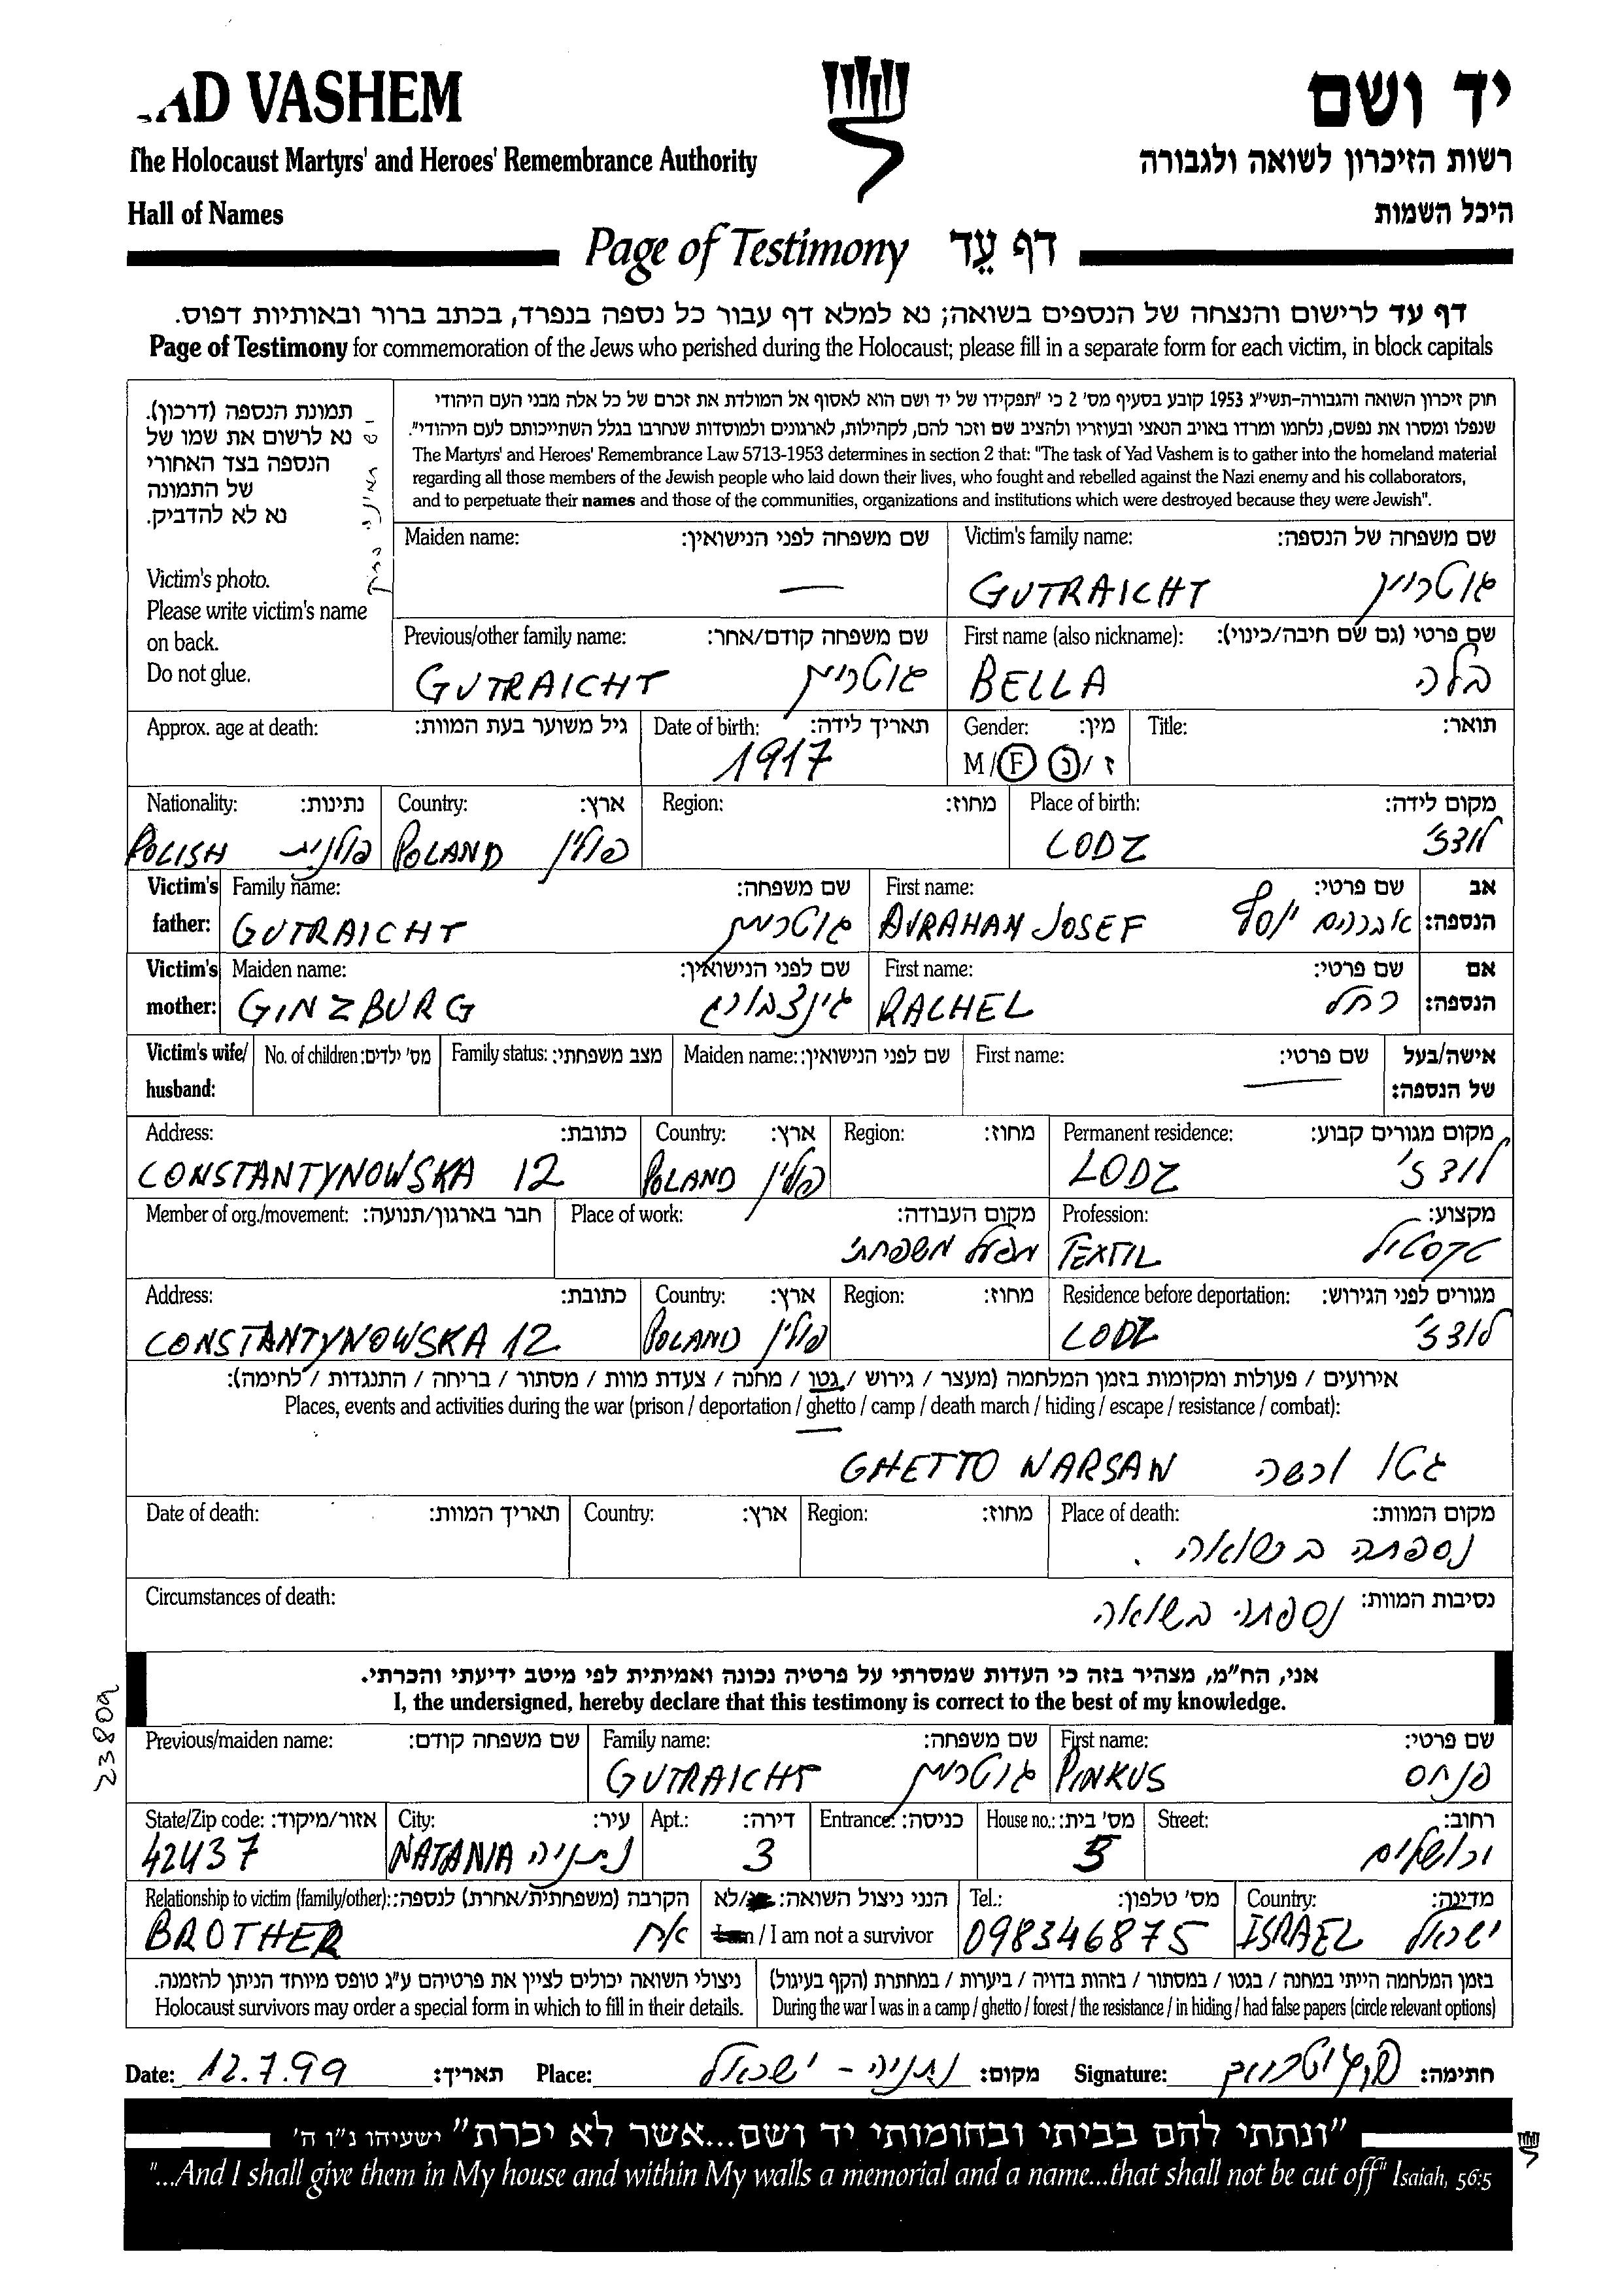 YAD VASHEM
יד ושם
The Holocaust Martyrs' and Heroes' Remembrance Authority
רשות הזיכרון לשואה ולגבורה
Hall of Names
היכל השמות
Page of Testimony דף עֵד
דף עד לרישום והנצחה של הנספים בשואה; נא למלא דף עבור כל נספה בנפרד, בכתב ברור ובאותיות דפוס.
Page of Testimony for commemoration of the Jews who perished during the Holocaust; please fill in a separate form for each victim, in block capitals
חוק זיכרון השואה והגבורה-תשי"ג 1953 קובע בסעיף מס' 2 כי "תפקידו של יד ושם הוא לאסוף אל המולדת את זכרם של כל אלה מבני העם היהודי
שנפלו ומסרו את נפשם, נלחמו ומרדו באויב הנאצי ובעוזריו ולהציב שם וזכר להם, לקהילות, לארגונים ולמוסדות שנחרבו בגלל השתייכותם לעם היהודי".
The Martyrs' and Heroes' Remembrance Law 5713-1953 determines in section 2 that: "The task of Yad Vashem is to gather into the homeland material
regarding all those members of the Jewish people who laid down their lives, who fought and rebelled against the Nazi enemy and his collaborators,
and to perpetuate their names and those of the communities, organizations and institutions which were destroyed because they were Jewish".
תמונת הנספה (דרכון).
נא לרשום את שמו של
הנספה בצד האחורי
של התמונה
נא לא להדביק.
Victim's photo.
Please write victim's name
on back.
Do not glue.
Victim's family name: שם משפחה של הנספה:
GUTRAICHT גוטרייך
Maiden name: שם משפחה לפני הנישואין:
—
First name (also nickname): שם פרטי (גם שם חיבה/כינוי):
BELLA בלה
Previous/other family name: שם משפחה קודם/אחר:
GUTRAICHT גוטרייך
Title: תואר:
Gender: מין:
M/F ז/נ
Date of birth: תאריך לידה:
1917
Approx. age at death: גיל משוער בעת המוות:
Place of birth: מקום לידה:
LODZ לודז'
Region: מחוז:
Country: ארץ:
POLAND פולין
Nationality: נתינות:
POLISH פולנית
Victim's father: אב הנספה:
First name: שם פרטי:
AVRAHAM JOSEF אברהם יוסף
Family name: שם משפחה:
GUTRAICHT גוטרייך
Victim's mother: אם הנספה:
First name: שם פרטי:
RACHEL רחל
Maiden name: שם לפני הנישואין:
GINZBURG גינצבורג
Victim's wife/ husband: אישה/בעל של הנספה:
First name: שם פרטי:
—
Maiden name: שם לפני הנישואין:
Family status: מצב משפחתי:
No. of children: מס' ילדים:
Permanent residence: מקום מגורים קבוע:
LODZ לודז'
Region: מחוז:
Country: ארץ:
POLAND פולין
Address: כתובת:
CONSTANTYNOWSKA 12
Profession: מקצוע:
TEXTIL טקסטיל
Place of work: מקום העבודה:
מפעל משפחתי
Member of org./movement: חבר בארגון/תנועה:
Residence before deportation: מגורים לפני הגירוש:
LODZ לודז'
Region: מחוז:
Country: ארץ:
POLAND פולין
Address: כתובת:
CONSTANTYNOWSKA 12
אירועים / פעולות ומקומות בזמן המלחמה (מעצר / גירוש / גטו / מחנה / צעדת מוות / מסתור / בריחה / התנגדות / לחימה):
Places, events and activities during the war (prison / deportation / ghetto / camp / death march / hiding / escape / resistance / combat):
GHETTO WARSAW גטו ורשה
Place of death: מקום המוות:
נספתה בשואה.
Region: מחוז:
Country: ארץ:
Date of death: תאריך המוות:
Circumstances of death: נסיבות המוות:
נספתה בשואה
אני, הח"מ, מצהיר בזה כי העדות שמסרתי על פרטיה נכונה ואמיתית לפי מיטב ידיעתי והכרתי.
I, the undersigned, hereby declare that this testimony is correct to the best of my knowledge.
23809
First name: שם פרטי:
PINKUS פנחס
Family name: שם משפחה:
GUTRAICHT גוטרייך
Previous/maiden name: שם משפחה קודם:
Street: רחוב:
ירושלים
House no.: מס' בית:
5
Entrance: כניסה:
Apt.: דירה:
3
City: עיר:
NATANIA נתניה
State/Zip code: אזור/מיקוד:
42437
Country: מדינה:
ISRAEL ישראל
Tel.: מס' טלפון:
098346875
הנני ניצול השואה: /לא
/ I am not a survivor
Relationship to victim (family/other): הקרבה (משפחתית/אחרת) לנספה:
BROTHER אח
בזמן המלחמה הייתי במחנה / בגטו / במסתור / בזהות בדויה / ביערות / במחתרת (הקף בעיגול)
During the war I was in a camp / ghetto / forest / the resistance / in hiding / had false papers (circle relevant options)
ניצולי השואה יכולים לציין את פרטיהם ע"ג טופס מיוחד הניתן להזמנה.
Holocaust survivors may order a special form in which to fill in their details.
Date: 12.7.99 תאריך: Place: נתניה - ישראל מקום: Signature: חתימה:
"ונתתי להם בביתי ובחומותי יד ושם...אשר לא יכרת" ישעיהו נ"ו ה'
"...And I shall give them in My house and within My walls a memorial and a name...that shall not be cut off" Isaiah, 56:5